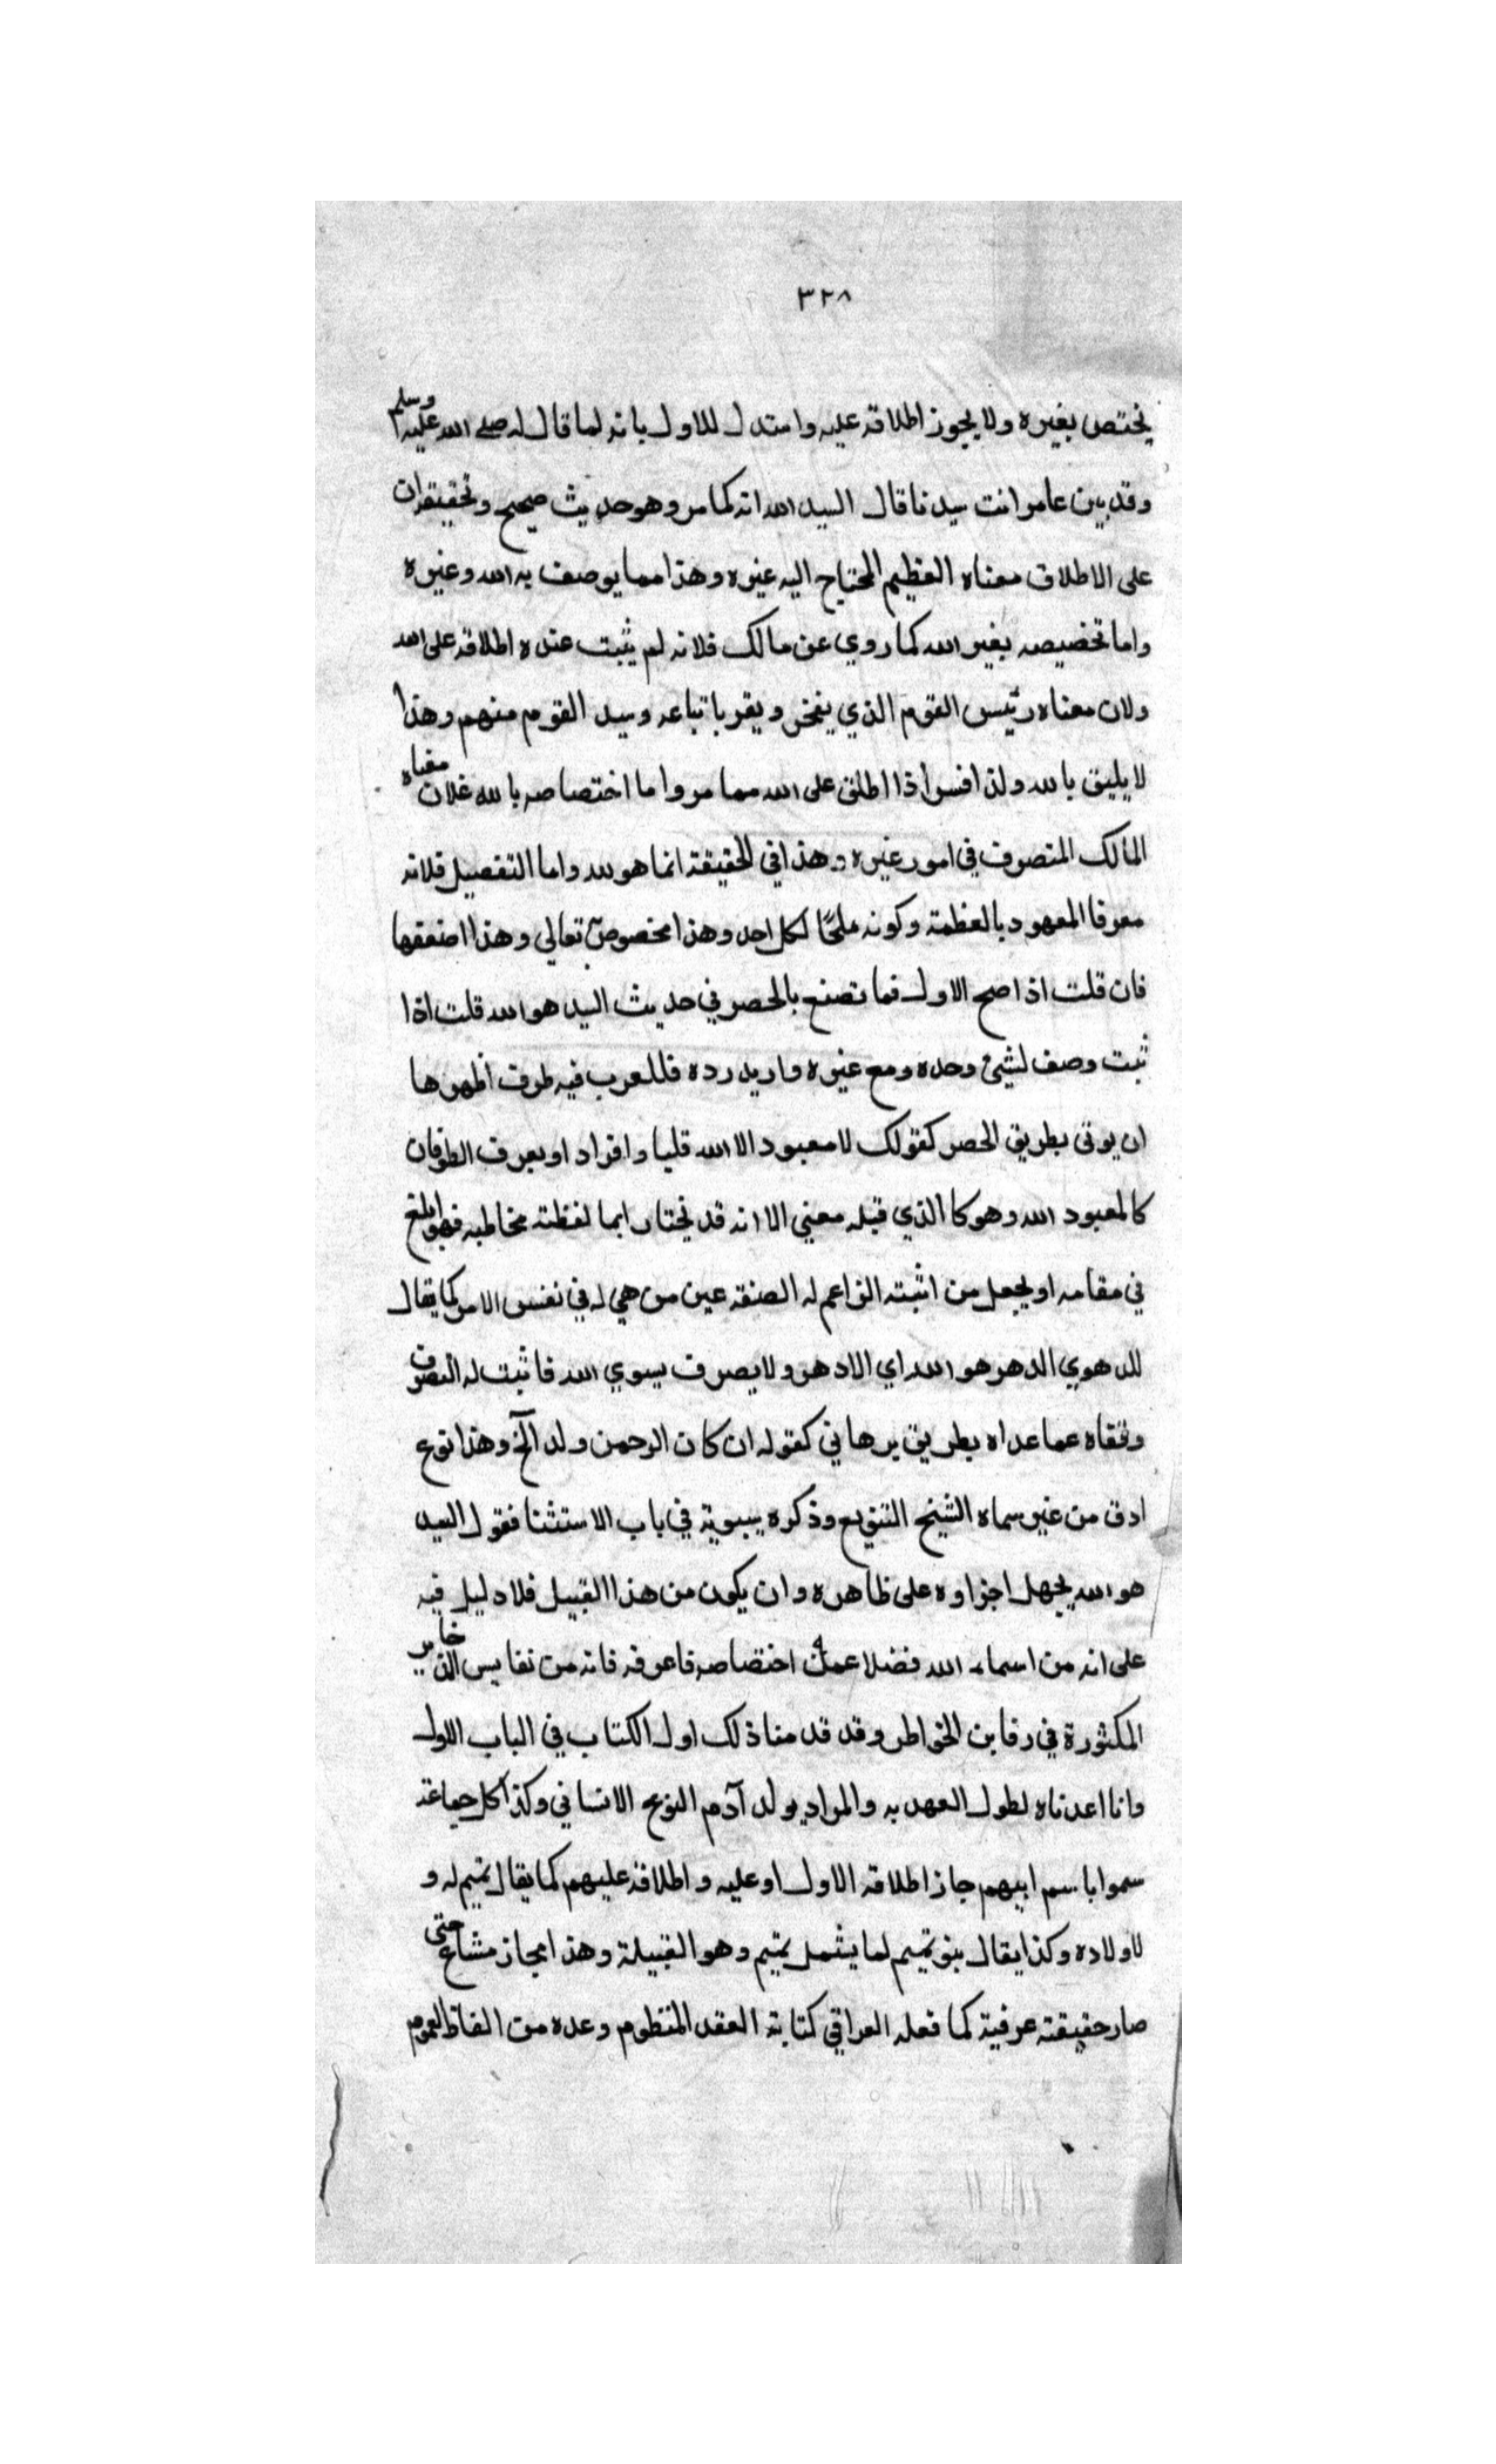 ٣٢٨
يختص بغيره ولا يجوز اطلاقه عليه واستدل للاول بانه لما قال له صلى الله عليه وسلم
وفد بين عامر انت سيدنا قال السيد الله انه كما مر وهو حديث صحيح وتحقيقه ان
على الاطلاق معناه العظيم المحتاج اليه غيره وهذا مما يوصف به الله وغيره
واما تخصيصه بغير الله كما روي عن مالك فلانه لم يثبت عنده اطلاقه على الله
ولان معناه رئيس القوم الذي يفخر ويقر باتباعه وسيد القوم منهم وهذا
لا يليق بالله ولذا فسر اذا اطلق على الله مما مر واما اختصاصه بالله فلان معناه
المالك المتصرف في امور غيره وهذا في الحقيقة انما هو لله واما التفصيل فلانه
معرفا المعهود بالعظمة وكونه ملجًا لكل احد وهذا مخصوص به تعالي وهذا اضعفها
فان قلت اذا صح الاول فما تصنع بالحصر في حديث السيد هو الله قلت اذا
ثبت وصف لشيئ وحده ومع غيره واريد رده فللعرب فيه طرق اظهرها
ان يوتى بطريق الحصر كقولك لا معبود الا الله قلبا وافراد او يعرف الطرفان
كالمعبود الله وهو كالذي قبله معني الا انه قد يختار ايما لغظته مخاطبه فهو ابلغ
في مقامه او يجعل من اثبته الزاعم له الصفة عين من هي له في نفس الامر كما يقال
للدهري الدهر هو الله اي لادهر ولا يصرف يسوي الله فاثبت له التصرف
ونفاه عما عداه بطريق برهاني كقوله ان كان الرحمن ولد الخ وهذا نوع
ادق من غير سماه الشيخ التنويع وذكره سيبوية في باب الاستثنا فقول السيد
هو الله يجهل اجزاوه على ظاهره وان يكون من هذا القبيل فلا دليل فيه
على انه من اسماء الله فضلا عن اختصاصه فاعرفه فانه من نفايس الذخاير
المكثورة في دفاين الخواطر وقد قدمنا ذلك اول الكتاب في الباب الاول
وانا اعدناه لطول العهد به والمراد بولد آدم النوع الانساني وكذا كل جماعة
سموا باسم ابيهم جاز اطلاقه الاول او عليه واطلاقه عليهم كما يقال تميم له و
لاولاده وكذا يقال بنو تميم لما يشمل تميم وهو القبيلة وهذا مجاز مشاع حتى
صار حقيقته عرفية كما فعله العراقي كتابة العقد المنظوم وعده من الفاظ العموم